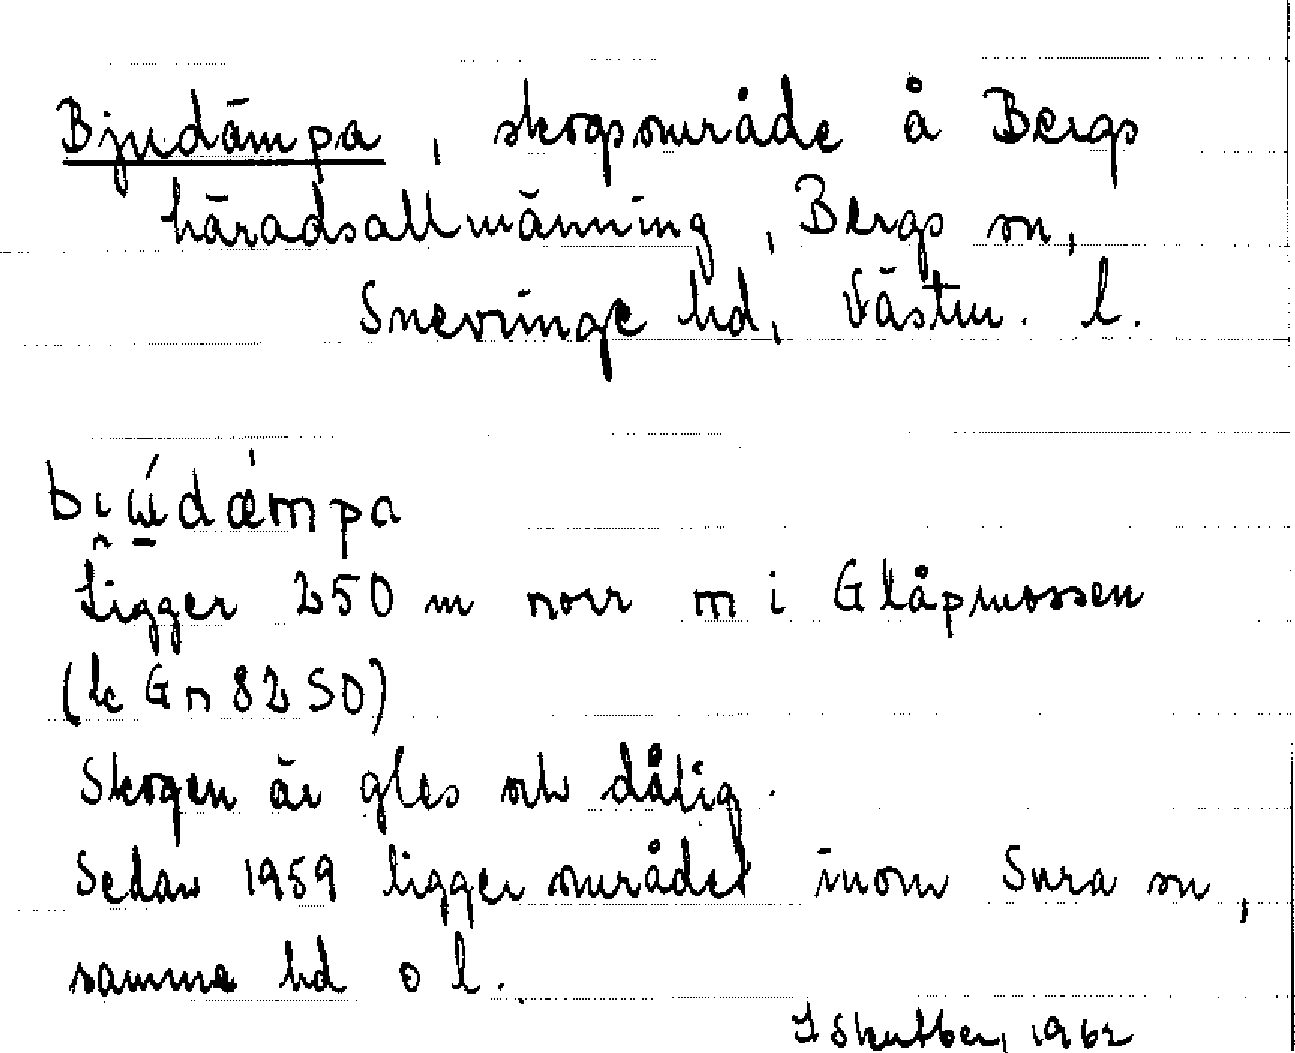 Bjudämpa, skogsområde å Bergs
häradsallmänning, Bergs sn,
Snevringe hd, Västm. l.
Ligger 250 m norr m i Glåpmossen
(k Gn 8250)
Skogen är gles och dålig.
Sedan 1959 ligger området inom Sura sn,
samma hd o l.
1962